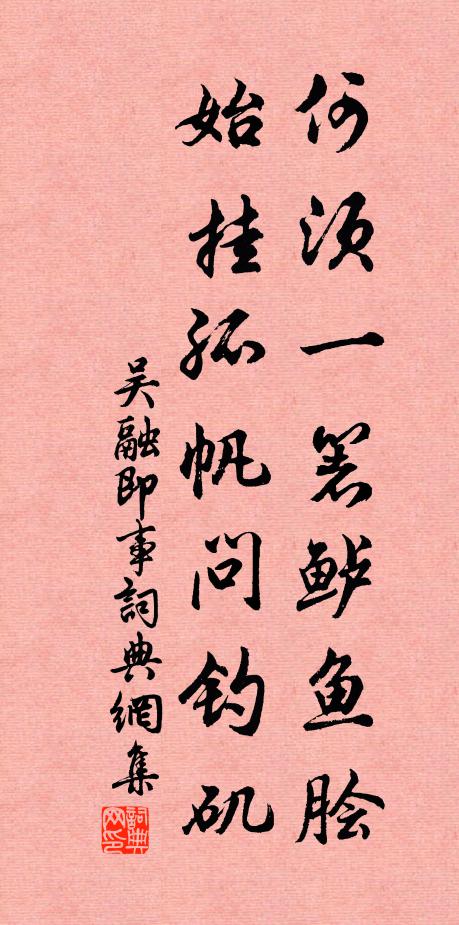 何须一箸鲈鱼脍
始挂孤帆问钓矶
吴融即事词典網集
詞典网印